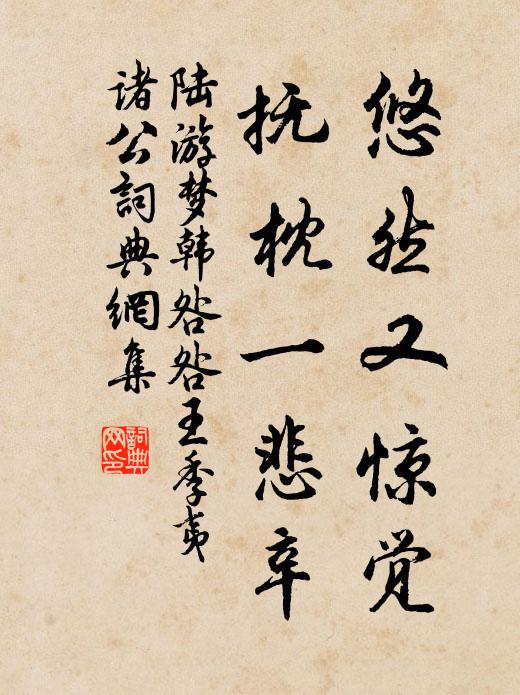 悠然又惊觉
抚枕一悲辛
陆游梦韩咎咎王季夷
诸公詞典網集
詞典网印